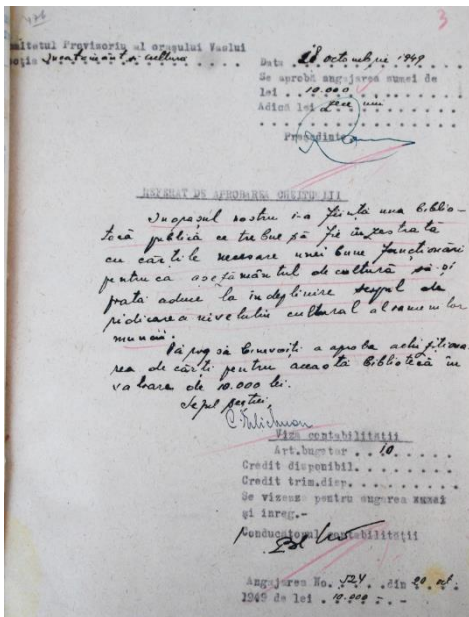 3
mitetul Provizoriu al orașului Vaslui
oția Învățământ și cultură
Data 18 octombrie 1949
Se aprobă angajarea sumei de
lei 10.000
Adică lei zece mii
Președinte
REFERAT DE APROBAREA CHELTUELII
In orașul nostru ia ființă una biblio-
tecă publică ce trebue să fie înzestrată
cu cărțile necesare unei bune funcționări
pentru ca așezământul de cultură să-și
poată aduce la îndeplinire scopul de
ridicarea nivelului cultural al oamenilor
muncii.
Vă rog să binevoiți a aproba achiziționa
rea de cărți pentru această bibliotecă în
valoare de 10.000 lei.
Șeful secției,
Viza contabilității
Art.bugetar 10
Credit disponibil
Credit trim.disp.
Se vizează pentru angarea sumei
și inreg.-
Conducătorul contabilității
Angajarea No. 524 din 20 oct
1949 de lei 10.000 -